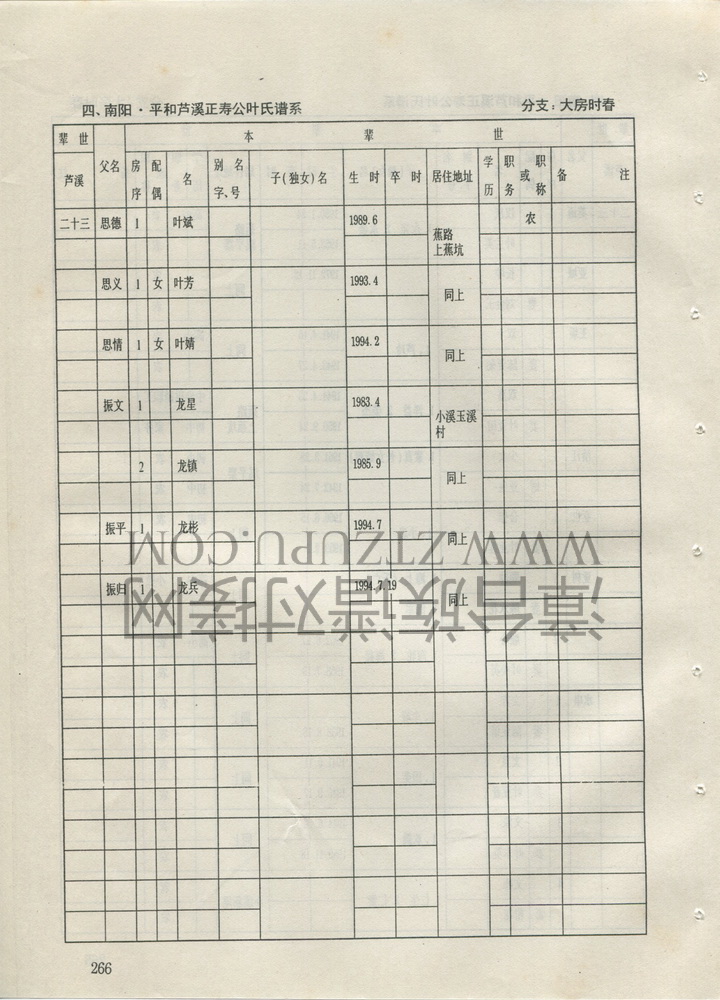 四、南阳·平和芦溪正寿公叶氏谱系 分支：大房时春
辈世 父名 本辈世
芦溪 房序 配偶 名 别名字、号 子（独女）名 生时 卒时 居住地址 学历 职务或职称 备注
二十三 思德 1 叶斌 1989.6 蕉路上蕉坑 农
思义 1 女 叶芳 1993.4 同上
思情 1 女 叶婧 1994.2 同上
振文 1 龙星 1983.4 小溪玉溪村
2 龙镇 1985.9 同上
振平 1 龙彬 1994.7 同上
振归 1 龙兵 1994.7.19 同上
WWW.ZTZUPU.COM
漳台族谱对接网
266